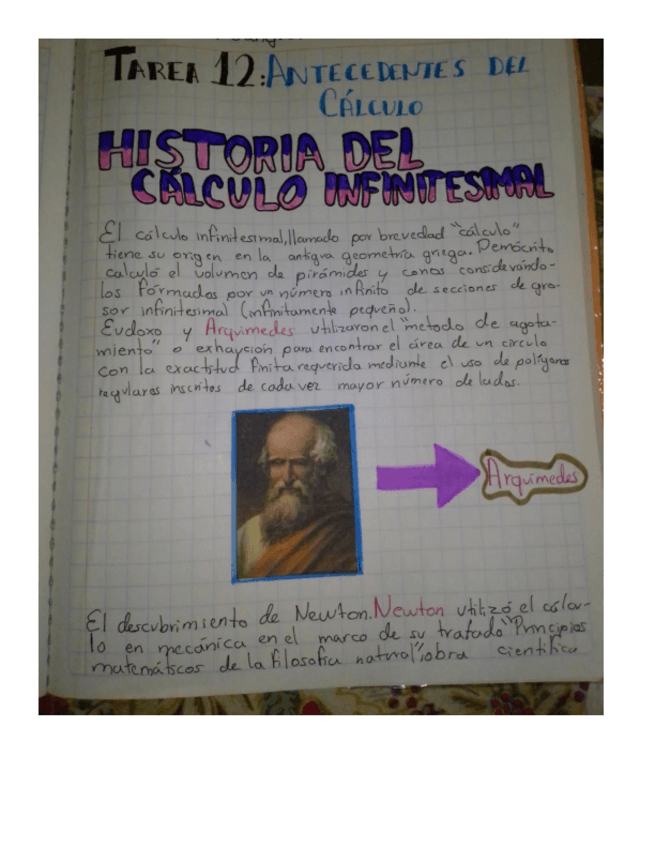 TAREA 12: ANTECEDENTES DEL
CÁLCULO
HISTORIA DEL
CÁLCULO INFINITESIMAL
El cálculo infinitesimal, llamado por brevedad "cálculo"
tiene su origen en la antigua geometría griega. Demócrito
calculó el volumen de pirámides y conos considerando-
los formados por un número infinito de secciones de gro-
sor infinitesimal (infinitamente pequeño).
Eudoxo y Arquímedes utilizaron el "método de agota-
miento" o exhaución para encontrar el área de un círculo
con la exactitud finita requerida mediante el uso de polígonos
regulares inscritos de cada vez mayor número de lados.
Arquímedes
El descubrimiento de Newton. Newton utilizó el cálcu-
lo en mecánica en el marco de su tratado "Principios
matemáticos de la filosofía natural", obra científica